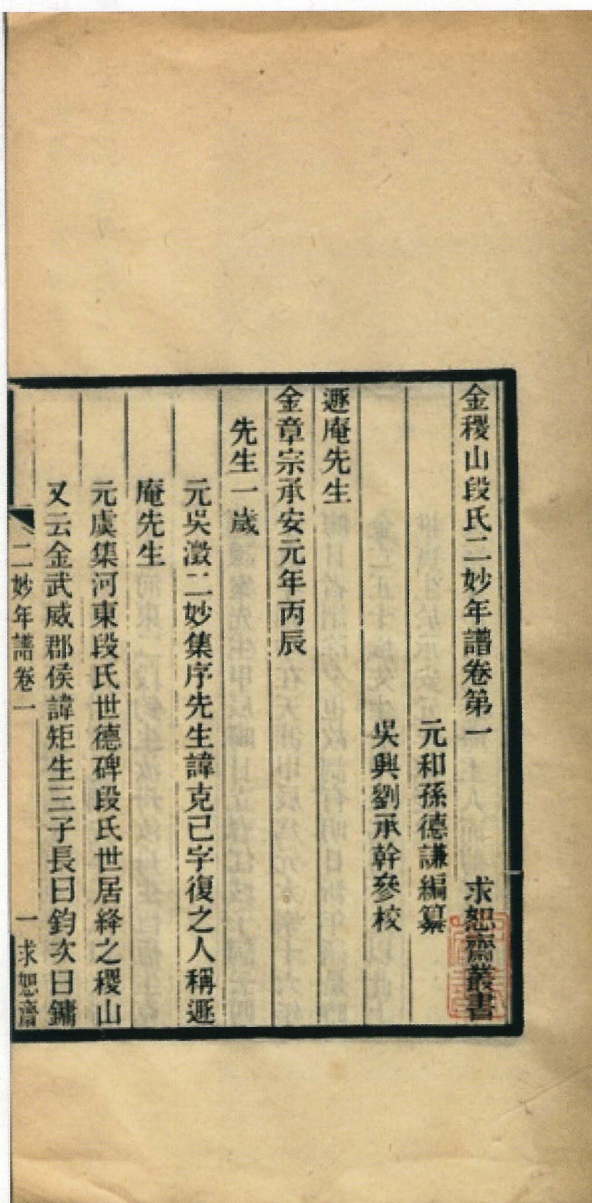 金稷山段氏二妙年譜卷第一 求恕齋叢書
元和孫德謙編纂
吳興劉承幹參校
遯庵先生
金章宗承安元年丙辰
先生一歲
元吳澂二妙集序先生諱克己字復之人稱遯
庵先生
元虞集河東段氏世德碑段氏世居絳之稷山
又云金武威郡侯諱矩生三子長曰鈞次曰鏞
二妙年譜卷一 一 求恕齋